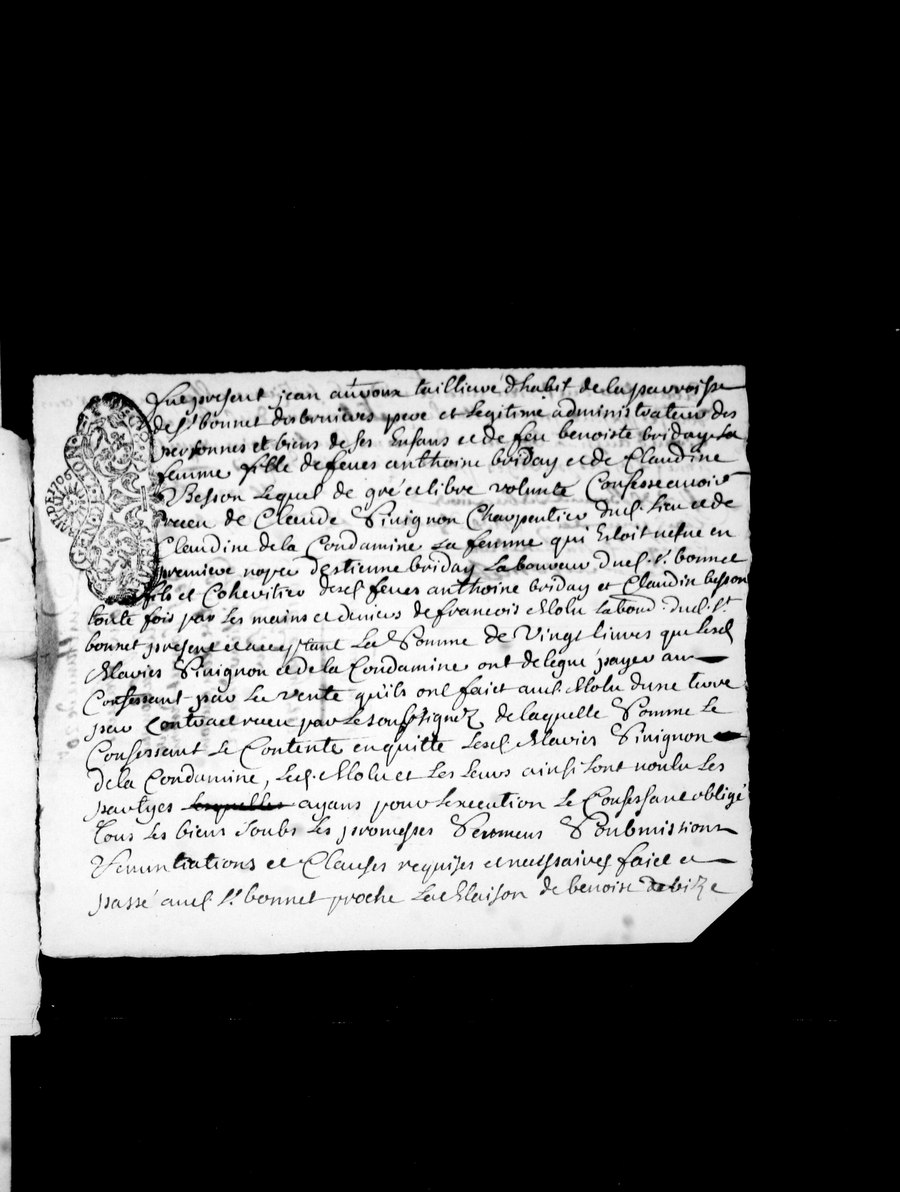 GEN. D. LION
AN DE 1706
Fut present jean auvoux taillieur d'habit de la parroisse
de st bonnet desbruieres pere et legitime administrateur des
personnes et biens de ses Enfans et de feu benoiste briday sa
femme fille de feues anthoine briday et de Claudine
Besson lequel de gré et libre volunté Confesse avoir
receu de Claude Pinignon Charpentier dud. lieu et de
Claudine de la Condamine sa femme qui Estoit vefue en
premiere noçes destienne briday laboureur dud. st. bonnet
fils et Coheritier desd feues anthoine briday et Claudine besson
toute fois par les mains et deniers de francois Molu labour. dud. st
bonnet present et acceptant La Somme de Vingt livres que lesd
Maries Pinignon et de la Condamine ont delegué payer au
Confessant par la vente qu'ils ont faict aud. Molu dune terre
par Contract receu par le soussigné de laquelle Somme le
Confessant se Contente en quitte lesd Maries Pinignon
de la Condamine, led. Molu et les leurs ainsi sont voulu les
partyes ayans pour lexecution le Confessant obligé
tous ses biens soubs les promesses Sermens Soubmissions
Renuntiations et Clauses requises et necessaires faict et
passé aud. st. bonnet proche la Maison de benoist